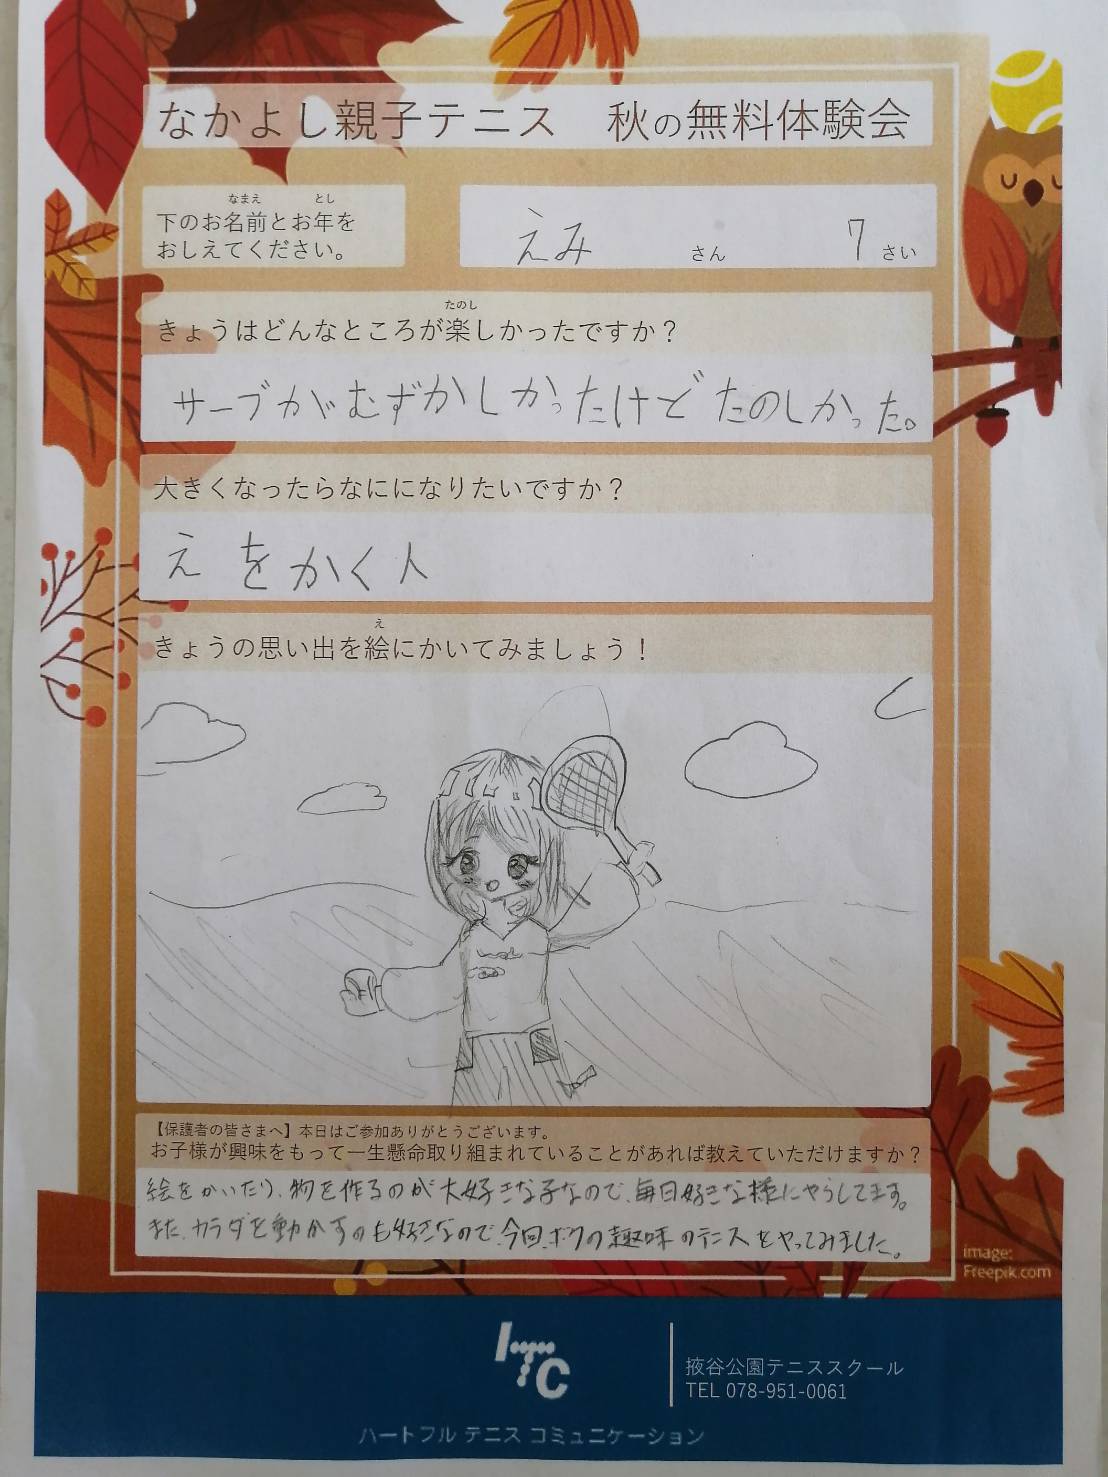 なかよし親子テニス　秋の無料体験会
なまえ　とし
下のお名前とお年を
おしえてください。
えみ　さん　7　さい
たのし
きょうはどんなところが楽しかったですか？
サーブがむずかしかったけどたのしかった。
大きくなったらなにになりたいですか？
え を かく人
え
きょうの思い出を絵にかいてみましょう！
【保護者の皆さまへ】本日はご参加ありがとうございます。
お子様が興味をもって一生懸命取り組まれていることがあれば教えていただけますか？
絵をかいたり、物を作るのが大好きな子なので、毎日好きな様にやらしてます。
また、カラダを動かすのも好きなので、今回、ボクの趣味のテニスをやってみました。
image:
Freepik.com
ITC
掖谷公園テニススクール
TEL 078-951-0061
ハートフル テニス コミュニケーション